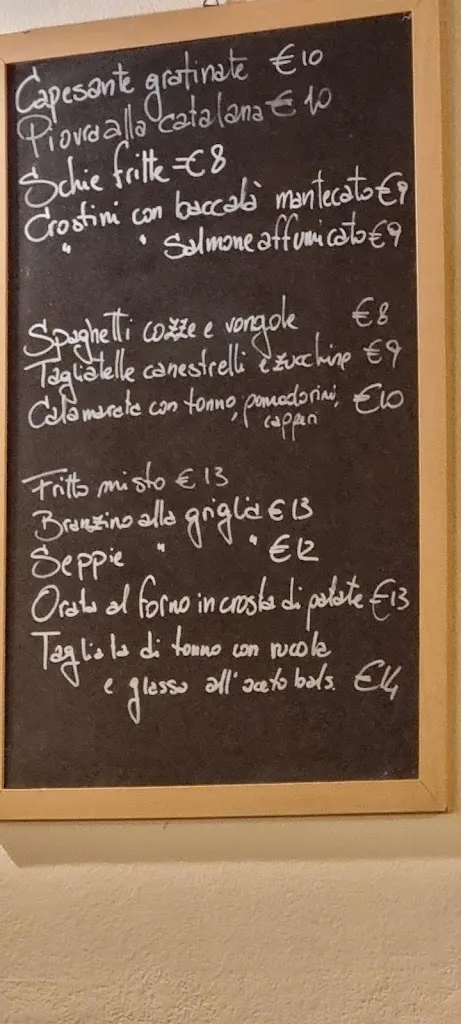 Capesante gratinate €10
Piovra alla catalana €10
Schie fritte €8
Crostini con baccalà mantecato €9
" " Salmone affumicato €9
Spaghetti cozze e vongole €8
Tagliatelle canestrelli e zucchine €9
Calamarata con tonno, pomodorini, €10
capperi
Fritto misto €13
Branzino alla griglia €13
Seppie " " €12
Orata al forno in crosta di patate €13
Tagliata di tonno con rucola
e glassa all'aceto bals. €14